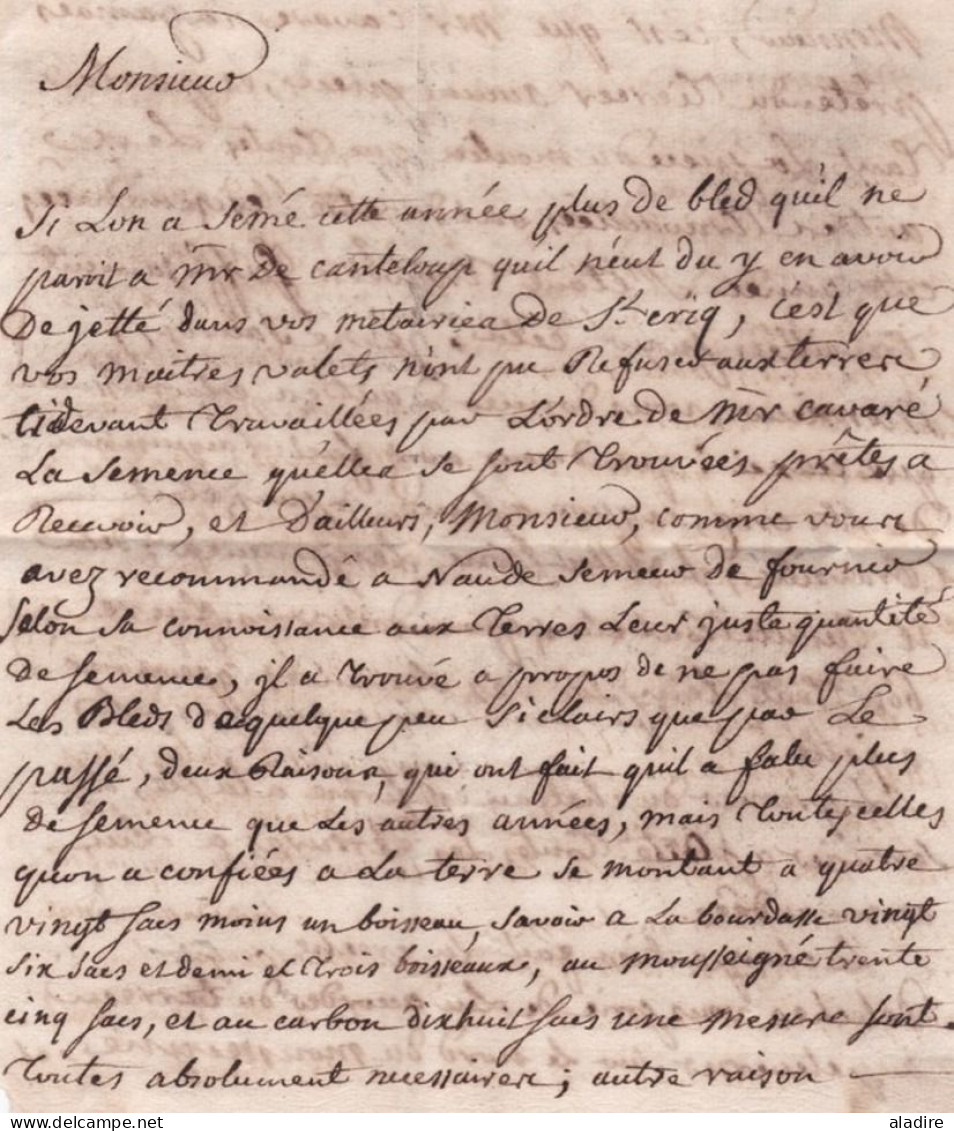 Monsieur
Si Lon a semé cette année plus de bled qu'il ne
paroit a Mr De Canteloup quil n'eut du y en avoir
De jetté dans vos metairies de St criq, c'est que
vos maitres valets n'ont pu Refuser aux terres
cidevant Travaillées par L'ordre de Mr cavaré
La semence qu'elles se sont Trouvées prêtes a
Recevoir, et D'ailleurs, Monsieur, comme vous
avez recommandé a Naude semeur de fournir
selon sa connoissance aux Terres Leur juste quantité
De semence, jl a Trouvé a propos de ne pas faire
Les Bleds de quelque peu si clairs que par Le
passé, deux Raisons, qui ont fait quil a falu plus
de semence que Les autres années, mais Toutes celles
quon a confiées a La terre se montant a quatre
vingt sacs moins un boisseau, savoir a La bourdasse vingt
six sacs et demi et Trois boisseaux, au mousseigné trente
cinq sacs, et au carbon dixhuit sacs une mesure sont
Toutes absolument necessaires; autre raison
aladire